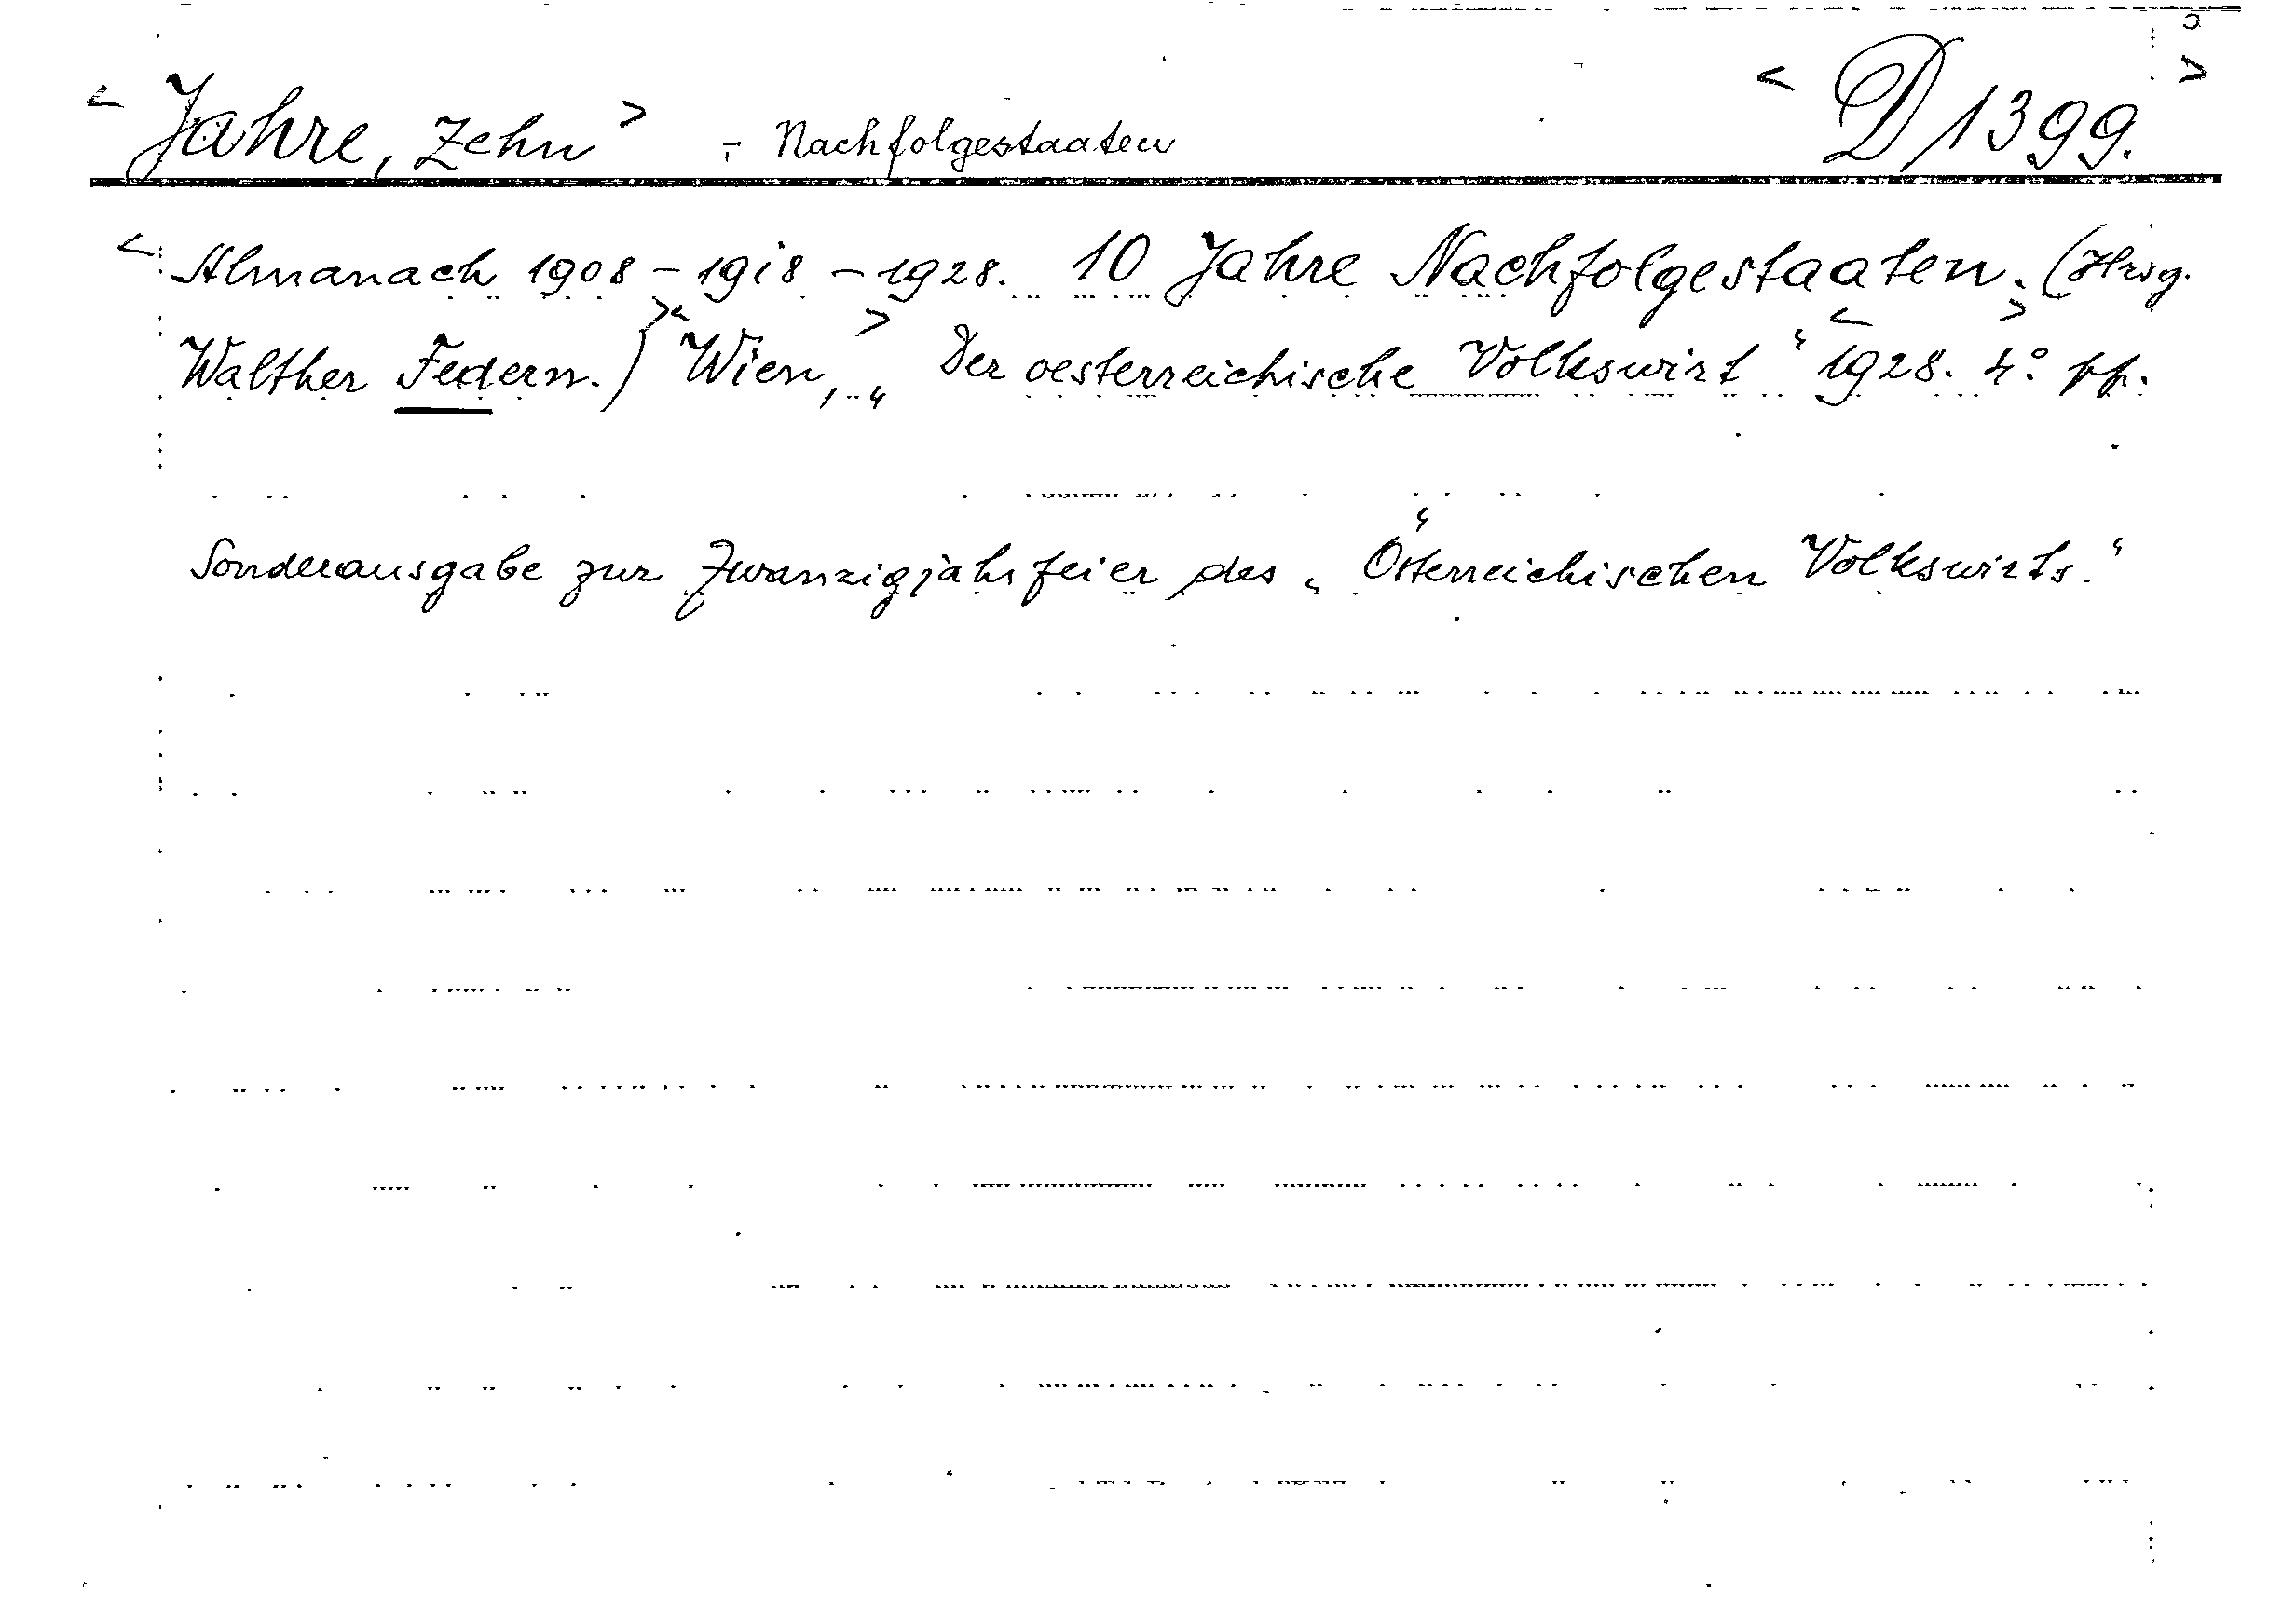 < Jahre, zehn > - Nachfolgestaaten < D 1399. >
< Almanach 1908 - 1918 - 1928. 10 Jahre Nachfolgestaaten. (Hrsg.
Walther Federn.) >< Wien, > „Der oesterreichische Volkswirt“ < 1928. > 4° pp.
Sonderausgabe zur Zwanzigjahrfeier des „Österreichischen Volkswirts.“